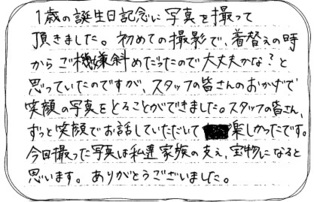 1歳の誕生日記念に写真を撮って
頂きました。初めての撮影で、着替えの時
からご機嫌斜めだったので大丈夫かな?と
思っていたのですが、スタッフの皆さんのおかげで
笑顔の写真をとることができました。スタッフの皆さん、
ずっと笑顔でお話していただいて楽しかったです。
今回撮った写真は私達家族の支え、宝物になると
思います。ありがとうございました。